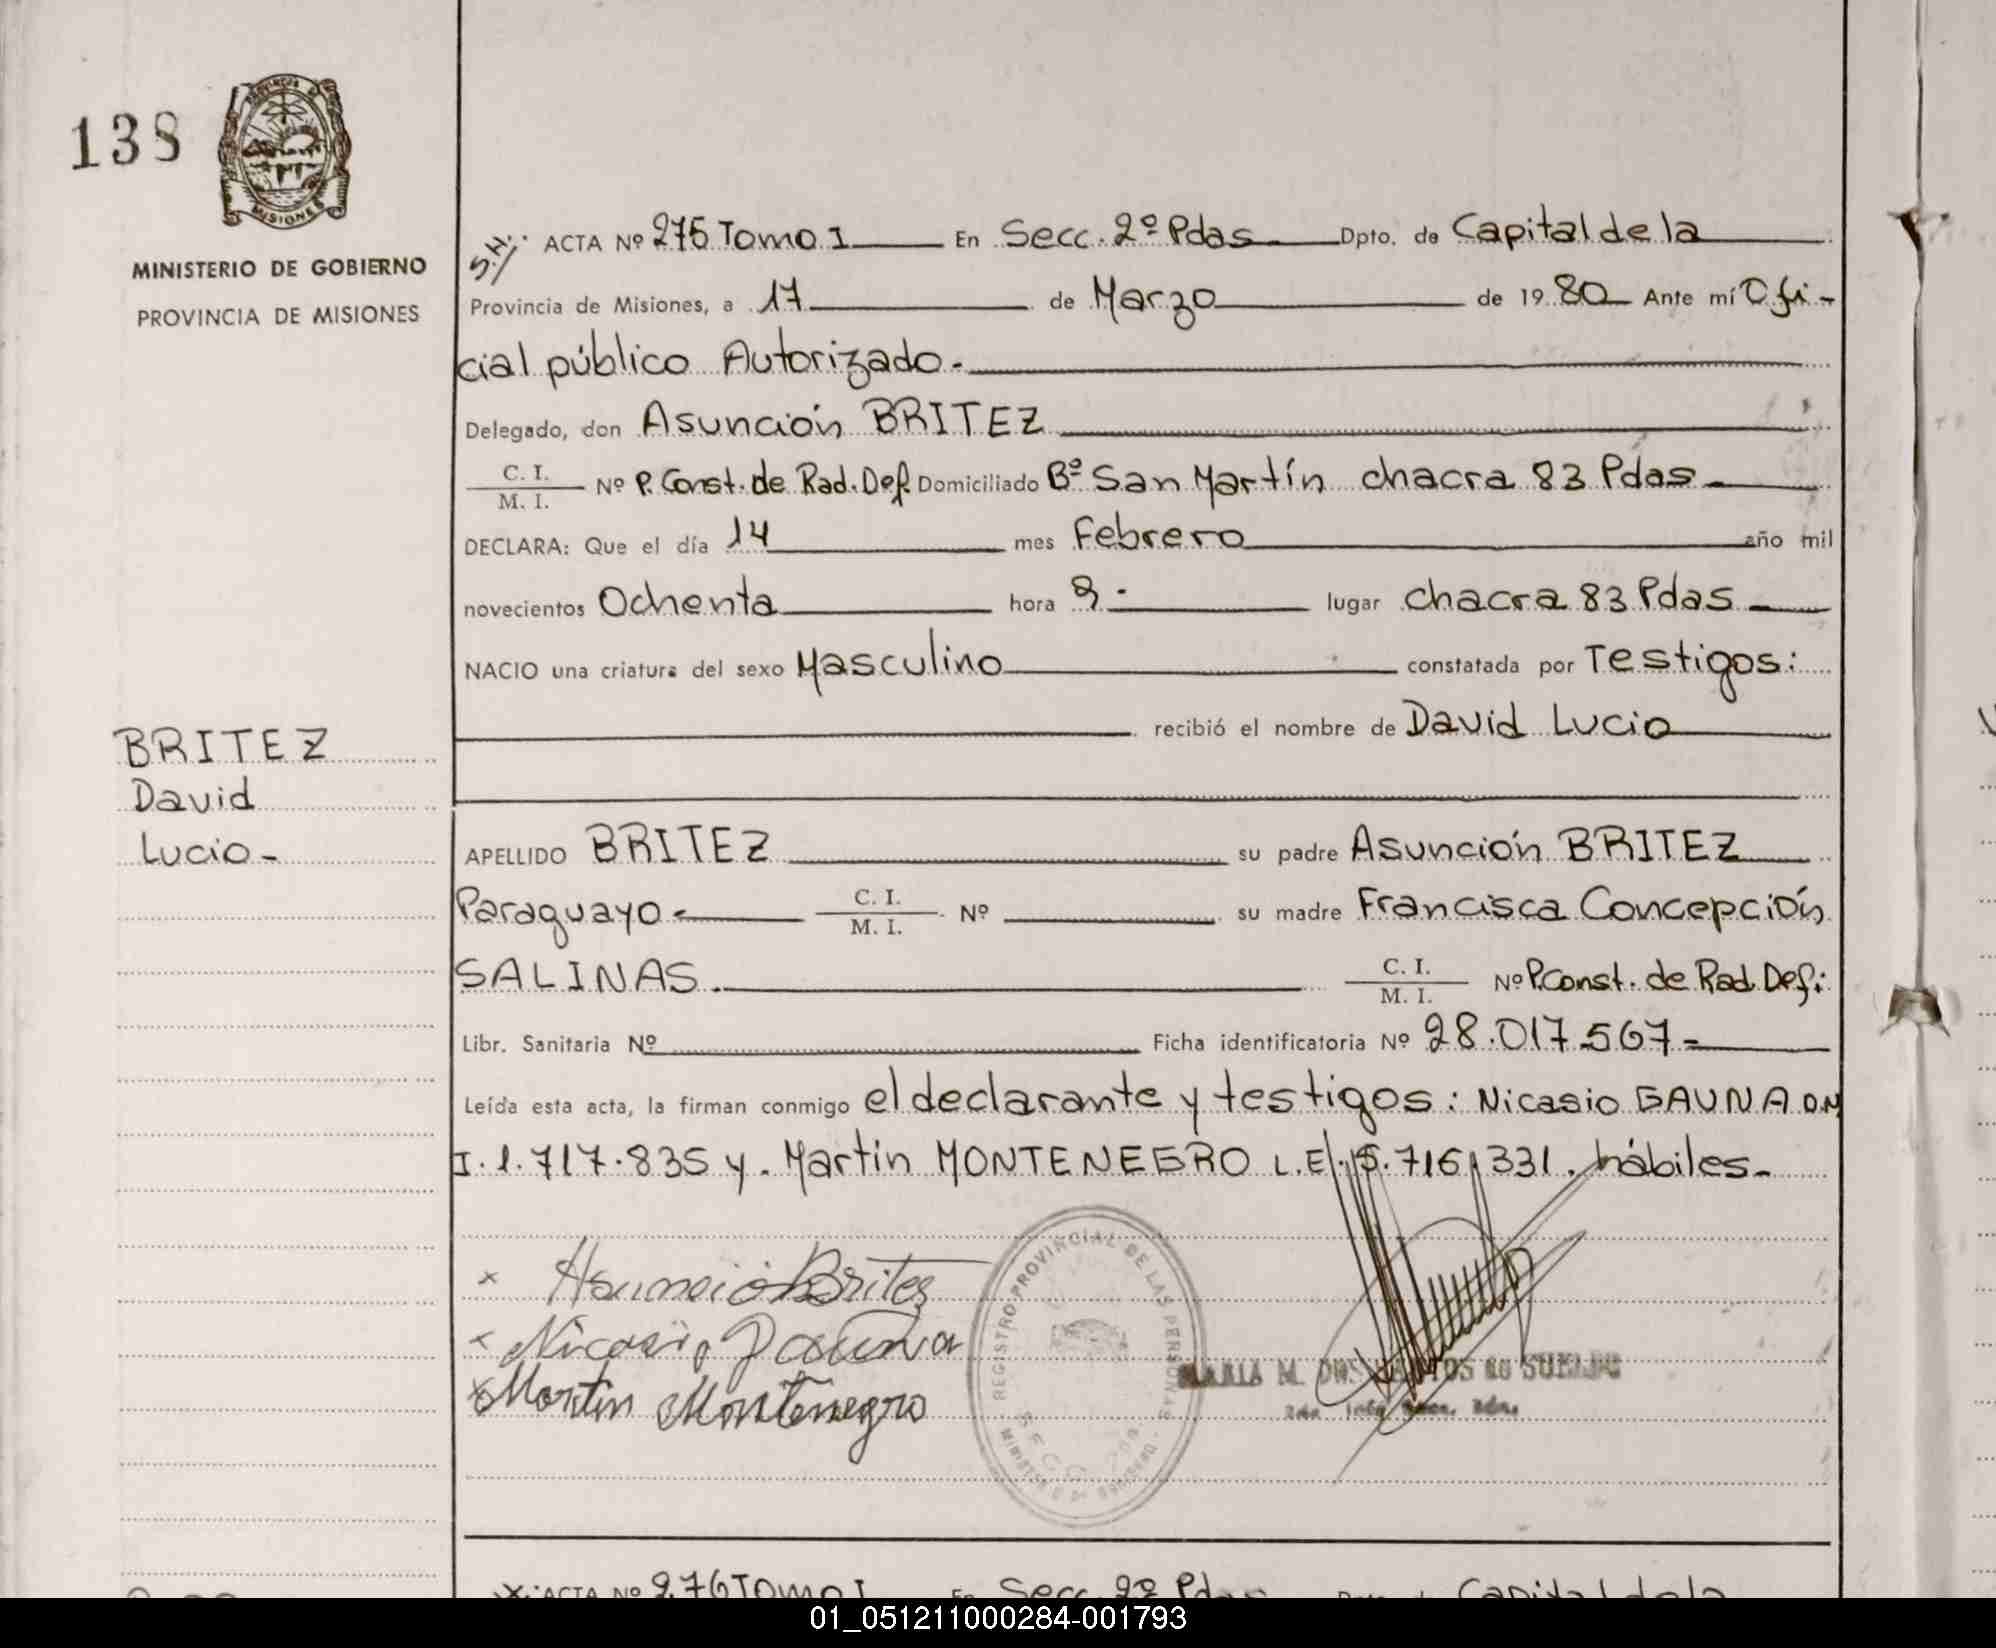 138
PROVINCIA DE
MISIONES
MINISTERIO DE GOBIERNO
PROVINCIA DE MISIONES
S.H/. ACTA Nº 275 Tomo I En Secc. 2º Pdas Dpto. de Capital de la
Provincia de Misiones, a 17 de Marzo de 1980 Ante mí Ofi-
cial público Autorizado.
Delegado, don Asunción BRITEZ
C. I.
M. I. Nº P. Const. de Rad. Def. Domiciliado Bº San Martín chacra 83 Pdas
DECLARA: Que el día 14 mes Febrero año mil
novecientos Ochenta hora 9.- lugar chacra 83 Pdas
NACIO una criatura del sexo Masculino constatada por Testigos:
recibió el nombre de David Lucio
BRITEZ
David
Lucio-
APELLIDO BRITEZ su padre Asunción BRITEZ
Paraguayo- C. I.
M. I. Nº su madre Francisca Concepción
SALINAS. C. I.
M. I. Nº P.Const. de Rad. Def:
Libr. Sanitaria Nº Ficha identificatoria Nº 28.017.567-
Leída esta acta, la firman conmigo el declarante y testigos: Nicasio GAUNA D.N
I. 1.717.835 y. Martin MONTENEGRO L.E. 5.716.331. hábiles-
x Asunció Britez
x Nicasio Gauna
x Martin Montenegro
REGISTRO PROVINCIAL DE LAS PERSONAS
SECC. 2da
MINISTERIO DE GOBIERNO
MARIA M. DOS SANTOS de
x. ACTA Nº 276 Tomo I En Secc. 2º Pdas Capital de la
01_051211000284-001793